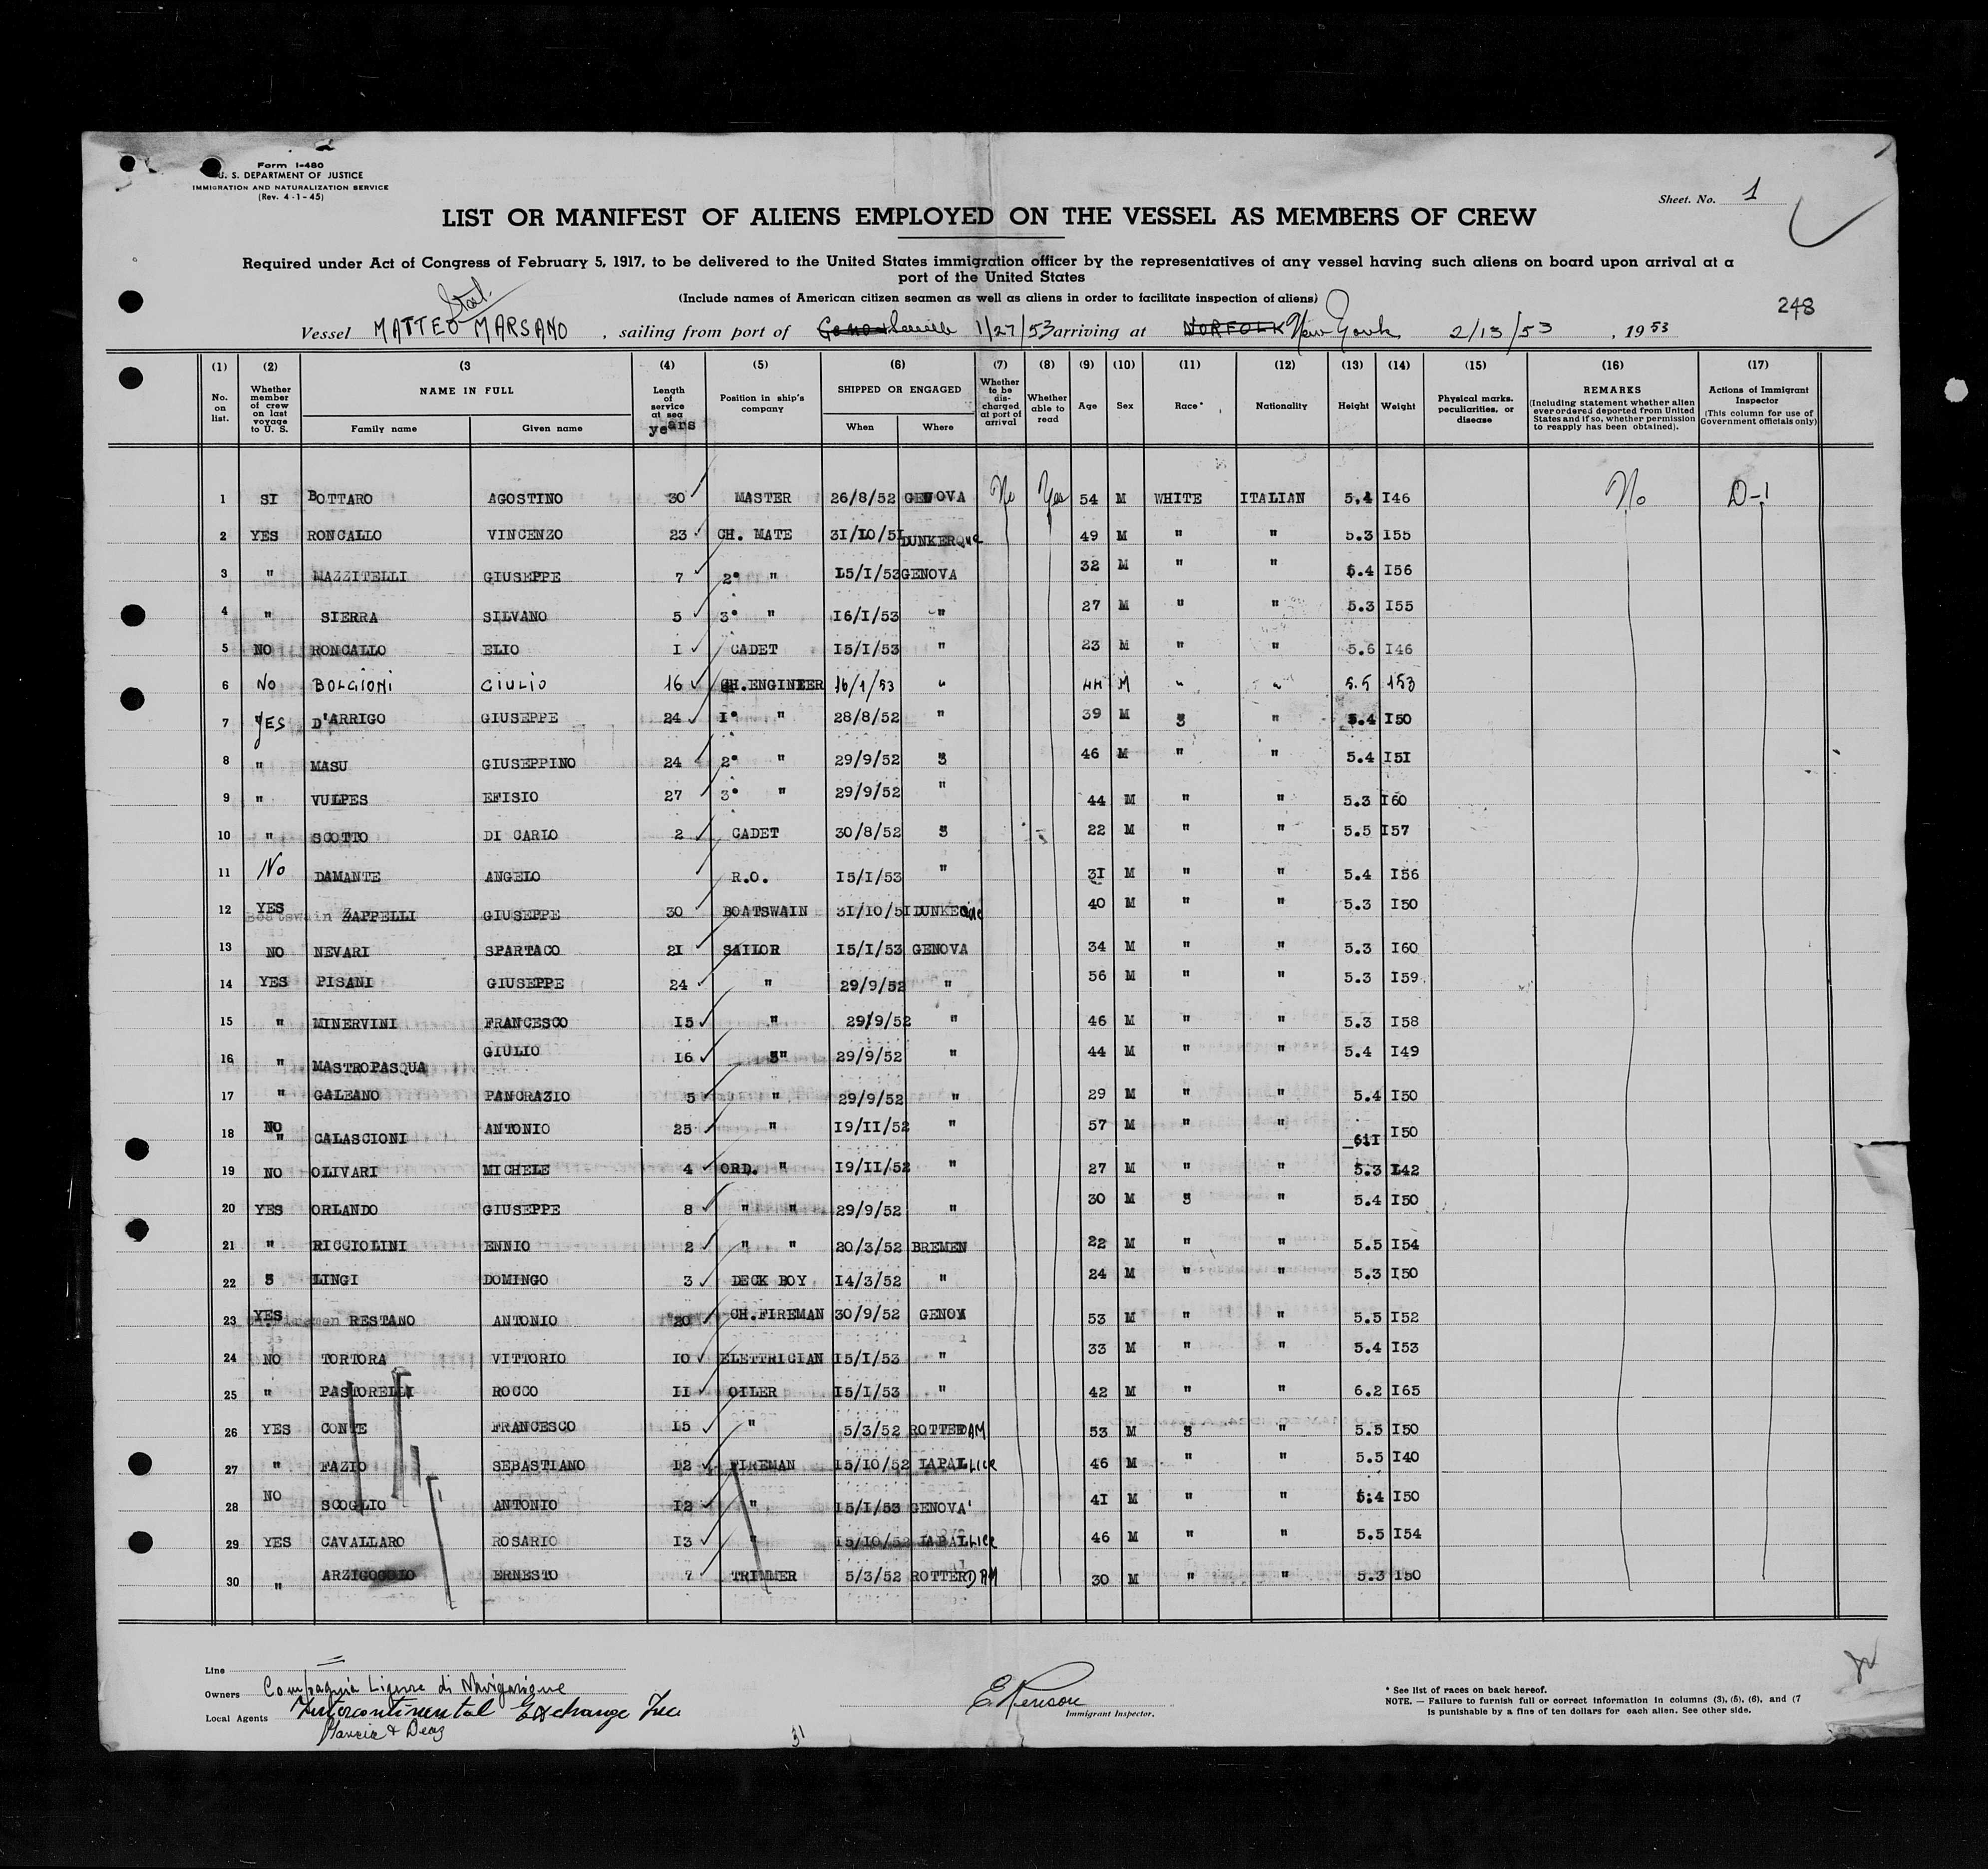 Form I-480
U. S. DEPARTMENT OF JUSTICE
IMMIGRATION AND NATURALIZATION SERVICE
(Rev. 4-1-45)
Sheet. No. 1
LIST OR MANIFEST OF ALIENS EMPLOYED ON THE VESSEL AS MEMBERS OF CREW
Required under Act of Congress of February 5, 1917, to be delivered to the United States immigration officer by the representatives of any vessel having such aliens on board upon arrival at a
port of the United States
(Include names of American citizen seamen as well as aliens in order to facilitate inspection of aliens)
248
Vessel MATTEO MARSANO , sailing from port of 1/27/53 arriving at NORFOLK New York 2/13/53 , 19 53
(1) (2) (3 (4) (5) (6) (7) (8) (9) (10) (11) (12) (13) (14) (15) (16) (17)
No. on list. Whether member of crew on last voyage to U. S. NAME IN FULL Family name Given name Length of service at sea years Position in ship's company SHIPPED OR ENGAGED When Where Whether to be discharged at port of arrival Whether able to read Age Sex Race* Nationality Height Weight Physical marks, peculiarities, or disease REMARKS (Including statement whether alien ever ordered deported from United States and if so, whether permission to reapply has been obtained). Actions of Immigrant Inspector (This column for use of Government officials only)
1 SI BOTTARO AGOSTINO 30 MASTER 26/8/52 GENOVA No Yes 54 M WHITE ITALIAN 5.4 I46 No D-1
2 YES RONCALLO VINCENZO 23 CH. MATE 3I/I0/5I DUNKERQUE 49 M " " 5.3 I55
3 " MAZZITELLI GIUSEPPE 7 2° " I5/I/53 GENOVA 32 M " " 5.4 I56
4 " SIERRA SILVANO 5 3° " I6/I/53 " 27 M " " 5.3 I55
5 NO RONCALLO ELIO I CADET I5/I/53 " 23 M " " 5.6 I46
6 NO BOLGIONI GIULIO 16 CH.ENGINEER 16/1/53 " 44 M " " 5.5 153
7 YES D'ARRIGO GIUSEPPE 24 I° " 28/8/52 " 39 M 3 " 5.4 I50
8 " MASU GIUSEPPINO 24 2° " 29/9/52 3 46 M " " 5.4 I5I
9 " VULPES EFISIO 27 3° " 29/9/52 " 44 M " " 5.3 I60
10 " SCOTTO DI CARLO 2 CADET 30/8/52 3 22 M " " 5.5 I57
11 No DAMANTE ANGELO R.O. I5/I/53 " 3I M " " 5.4 I56
12 YES Boatswain ZAPPELLI GIUSEPPE 30 BOATSWAIN 3I/I0/5I DUNKEQUE 40 M " " 5.3 I50
13 NO NEVARI SPARTACO 2I SAILOR I5/I/53 GENOVA 34 M " " 5.3 I60
14 YES PISANI GIUSEPPE 24 " 29/9/52 " 56 M " " 5.3 I59
15 " MINERVINI FRANCESCO I5 " 29/9/52 " 46 M " " 5.3 I58
16 " MASTROPASQUA GIULIO I6 3" 29/9/52 " 44 M " " 5.4 I49
17 " GALEANO PANCRAZIO 5 " 29/9/52 " 29 M " " 5.4 I50
18 NO " CALASCIONI ANTONIO 25 " I9/II/52 " 57 M " " I50
19 NO OLIVARI MICHELE 4 ORD. " I9/II/52 " 27 M " " 5.3 I42
20 YES ORLANDO GIUSEPPE 8 " " 29/9/52 " 30 M 3 " 5.4 I50
21 " RICCIOLINI ENNIO 2 " " 20/3/52 BREMEN 22 M " " 5.5 I54
22 3 LINGI DOMINGO 3 DECK BOY I4/3/52 " 24 M " " 5.3 I50
23 YES RESTANO ANTONIO 20 CH.FIREMAN 30/9/52 GENOVA 53 M " " 5.5 I52
24 NO TORTORA VITTORIO I0 ELETTRICIAN I5/I/53 " 33 M " " 5.4 I53
25 " PASTORELLI ROCCO II OILER I5/I/53 " 42 M " " 6.2 I65
26 YES CONTE FRANCESCO I5 " 5/3/52 ROTTERDAM 53 M 3 " 5.5 I50
27 " FAZIO SEBASTIANO I2 FIREMAN I5/I0/52 LAPALLICE 46 M " " 5.5 I40
28 NO SCOGLIO ANTONIO I2 " I5/I/53 GENOVA 4I M " " 5.4 I50
29 YES CAVALLARO ROSARIO I3 " I5/I0/52 LAPALLICE 46 M " " 5.5 I54
30 " ARZIGOGOLO ERNESTO 7 TRIMMER 5/3/52 ROTTERDAM 30 M " " 5.3 I50
Line
Owners Compagnia Ligure di Navigazione
Local Agents Intercontinental Exchange Inc.
Garcia & Deaz
31
Immigrant Inspector.
* See list of races on back hereof.
NOTE. — Failure to furnish full or correct information in columns (3), (5), (6), and (7
is punishable by a fine of ten dollars for each alien. See other side.